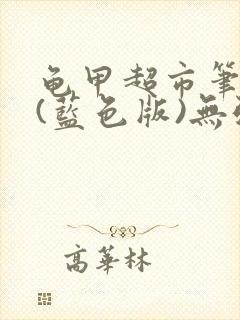 龟甲超市筆
(藍色版)無
高華林